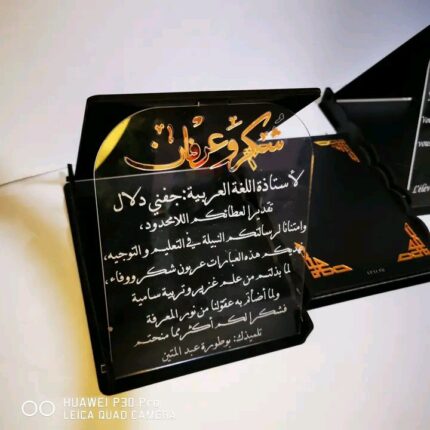 شكر وعرفان
لأستاذة اللغة العربية: جفني دلال
تقديرا لعطائكم اللامحدود،
وامتنانا لرسالتكم النبيلة في التعليم و التوجيه،
نهديكم هذه العبارات عربون شكر ووفاء،
لما بذلتم من علم غزير وتربية سامية
ولما أضأتم به عقولنا من نور المعرفة
فشكرا لكم أكثر مما منحتم
تلميذك: بوطورة عبد المتين
HUAWEI P30 Pro
LEICA QUAD CAMERA